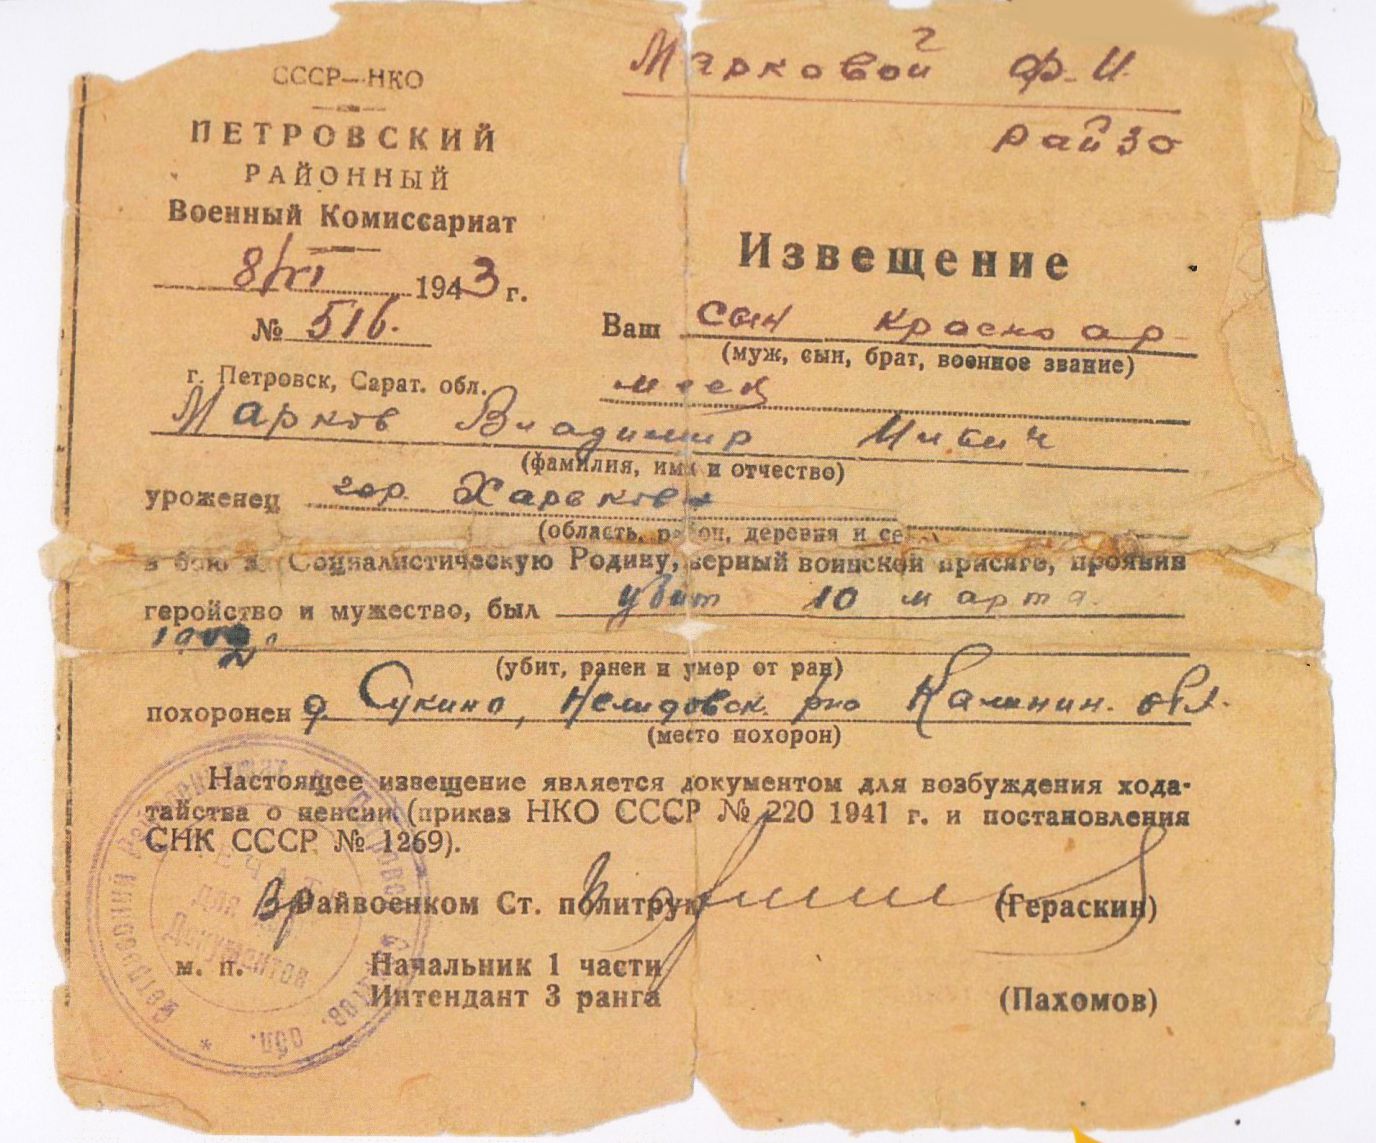 СССР—НКО
ПЕТРОВСКИЙ
РАЙОННЫЙ
Военный Комиссариат
8/VI 1943 г.
№ 516.
г. Петровск, Сарат. обл.
Марковой Ф. И.
райзо
Извещение
Ваш сын красноар-
(муж, сын, брат, военное звание)
меец
Марков Владимир
(фамилия, имя и отчество)
уроженец гор. Харькова
(область, район, деревня и се
в бою за Социалистическую Родину, верный воинской присяге, проявив
геройство и мужество, был убит 10 марта
(убит, ранен и умер от ран)
похоронен д. Сукино, Нелидовск. р-но Калинин. обл.
(место похорон)
Настоящее извещение является документом для возбуждения хода-
тайства о пенсии (приказ НКО СССР № 220 1941 г. и постановления
СНК СССР № 1269).
Вр Райвоенком Ст. политрук (Гераскин)
м. п. Начальник 1 части
Интендант 3 ранга (Пахомов)
Петровский Рай Петровск Саратов. обл. *
ПЕЧАТЬ
для
Документов